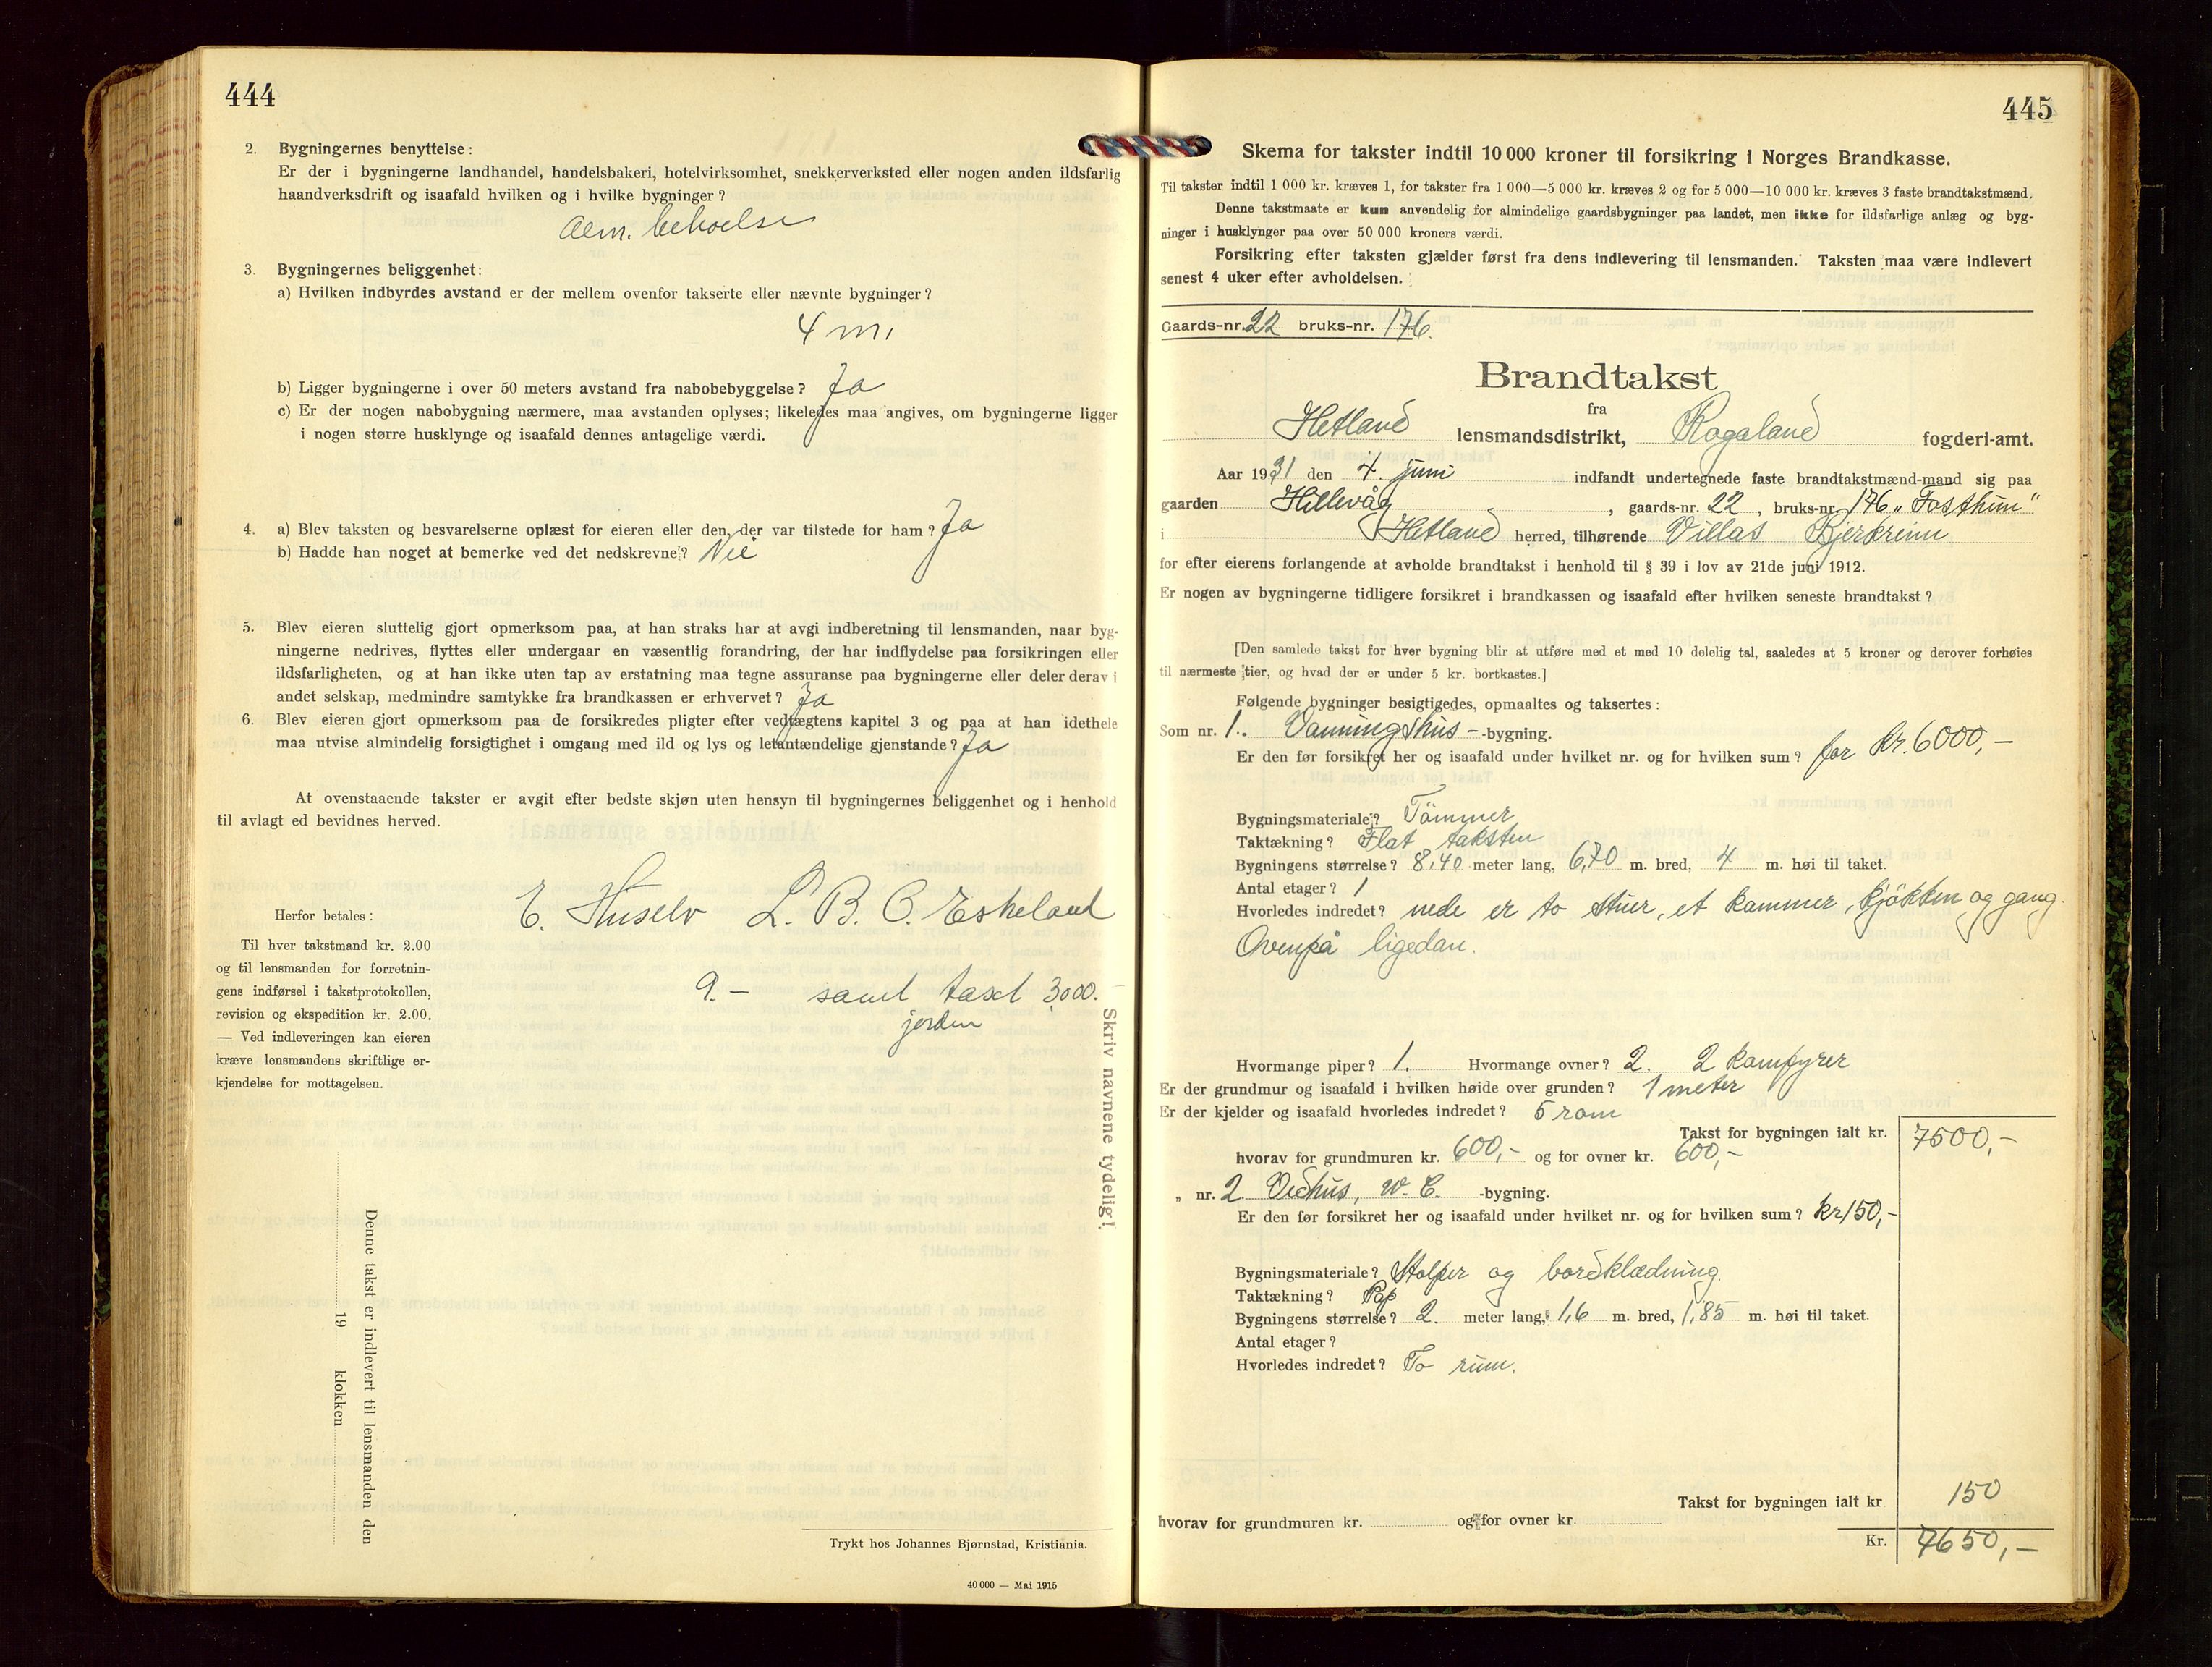 444
2. Bygningernes benyttelse:
Er der i bygningerne landhandel, handelsbakeri, hotelvirksomhet, snekkerverksted eller nogen anden ildsfarlig
haandverksdrift og isaafald hvilken og i hvilke bygninger?
Alm. beboelse
3. Bygningernes beliggenhet:
a) Hvilken indbyrdes avstand er der mellem ovenfor takserte eller nævnte bygninger?
4 m.
b) Ligger bygningerne i over 50 meters avstand fra nabobebyggelse? Ja
c) Er der nogen nabobygning nærmere, maa avstanden oplyses; likeledes maa angives, om bygningerne ligger
i nogen større husklynge og isaafald dennes antagelige værdi.
4. a) Blev taksten og besvarelserne oplæst for eieren eller den, der var tilstede for ham? Ja
b) Hadde han noget at bemerke ved det nedskrevne? Nei
5. Blev eieren sluttelig gjort opmerksom paa, at han straks har at avgi indberetning til lensmanden, naar byg-
ningerne nedrives, flyttes eller undergaar en væsentlig forandring, der har indflydelse paa forsikringen eller
ildsfarligheten, og at han ikke uten tap av erstatning maa tegne assuranse paa bygningerne eller deler derav i
andet selskap, medmindre samtykke fra brandkassen er erhvervet? Ja
6. Blev eieren gjort opmerksom paa de forsikredes pligter efter vedtægtens kapitel 3 og paa at han idethele
maa utvise almindelig forsigtighet i omgang med ild og lys og letantændelige gjenstande? Ja
At ovenstaaende takster er avgit efter bedste skjøn uten hensyn til bygningernes beliggenhet og i henhold
til avlagt ed bevidnes herved.
E. Huselv L. B. C. Eskeland
Herfor betales:
Til hver takstmand kr. 2.00
og til lensmanden for forretnin-
gens indførsel i takstprotokollen,
revision og ekspedition kr. 2.00.
— Ved indleveringen kan eieren
kræve lensmandens skriftlige er-
kjendelse for mottagelsen.
9.— samt taxt 3000.
jorden
Skriv navnene tydelig!
Denne takst er indlevert til lensmanden den
19 klokken
Trykt hos Johannes Bjørnstad, Kristiania.
40 000 — Mai 1915
445
Skema for takster indtil 10 000 kroner til forsikring i Norges Brandkasse.
Til takster indtil 1 000 kr. kræves 1, for takster fra 1 000—5 000 kr. kræves 2 og for 5 000—10 000 kr. kræves 3 faste brandtakstmænd.
Denne takstmaate er kun anvendelig for almindelige gaardsbygninger paa landet, men ikke for ildsfarlige anlæg og byg-
ninger i husklynger paa over 50 000 kroners værdi.
Forsikring efter taksten gjælder først fra dens indlevering til lensmanden. Taksten maa være indlevert
senest 4 uker efter avholdelsen.
Gaards-nr. 22 bruks-nr. 176.
Brandtakst
fra
Hetland lensmandsdistrikt, Rogaland fogderi-amt.
Aar 1931 den 4. juni indfandt undertegnede faste brandtakstmænd-mand sig paa
gaarden Hillevåg, gaards-nr. 22, bruks-nr. 176 „Fastheim"
i Hetland herred, tilhørende Villas Bjerkreim
for efter eierens forlangende at avholde brandtakst i henhold til § 39 i lov av 21de juni 1912.
Er nogen av bygningerne tidligere forsikret i brandkassen og isaafald efter hvilken seneste brandtakst?
[Den samlede takst for hver bygning blir at utføre med et med 10 delelig tal, saaledes at 5 kroner og derover forhøies
til nærmeste tier, og hvad der er under 5 kr. bortkastes.]
Følgende bygninger besigtigedes, opmaaltes og taksertes:
Som nr. 1. Vaaningshus - -bygning.
Er den før forsikret her og isaafald under hvilket nr. og for hvilken sum? for kr. 6000,—
Bygningsmateriale? Tömmer
Taktækning? Flat taksten
Bygningens størrelse? 8,40 meter lang, 6,70 m. bred, 4 m. høi til taket.
Antal etager? 1
Hvorledes indredet? nede er to stuer, et kammer, kjökken og gang.
Ovenpå ligedan.
Hvormange piper? 1. Hvormange ovner? 2. 2 komfyrer
Er der grundmur og isaafald i hvilken høide over grunden? 1 meter
Er der kjelder og isaafald hvorledes indredet? 5 rom
Takst for bygningen ialt kr. 7500,—
hvorav for grundmuren kr. 600,— og for ovner kr. 600,—
„ nr. 2 Vedhus, W. C. -bygning.
Er den før forsikret her og isaafald under hvilket nr. og for hvilken sum? kr 150,—
Bygningsmateriale? Stolper og bordklædning.
Taktækning? Pap
Bygningens størrelse? 2. meter lang, 1,6 m. bred, 1,85 m. høi til taket.
Antal etager?
Hvorledes indredet? To rum.
Takst for bygningen ialt kr 150
hvorav for grundmuren kr. og for ovner kr.
Kr. 7650,—